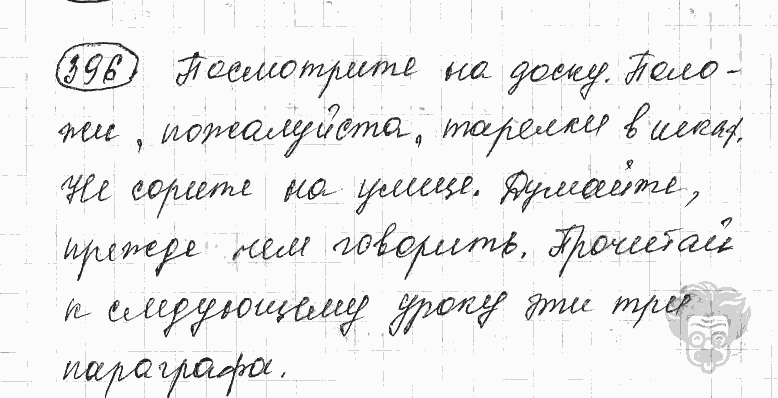 396 Посмотрите на доску. Поло-
жи, пожалуйста, тарелки в шкаф.
Не сорите на улице. Думайте,
прежде чем говорить. Прочитай
к следующему уроку эти три
параграфа.